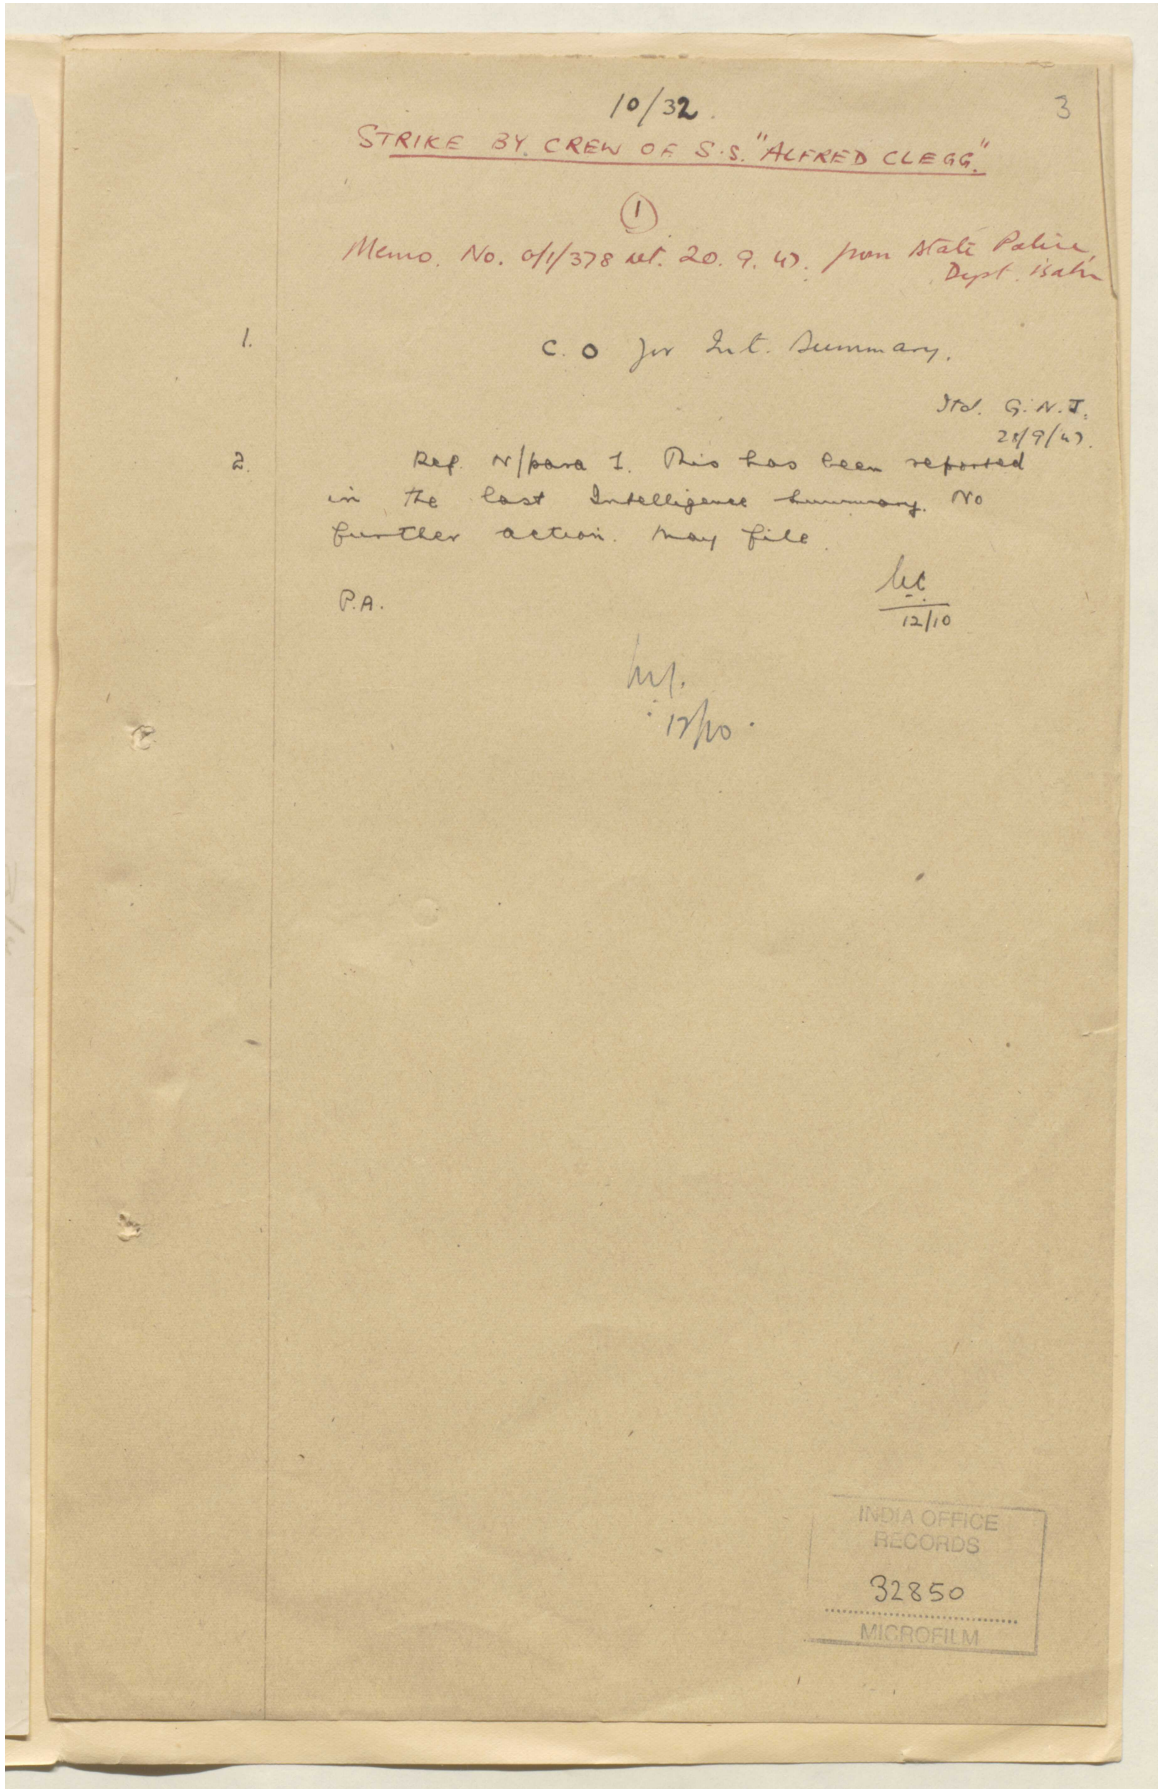 10/32.
3
STRIKE BY CREW OF S.S. "ALFRED CLEGG."
1
Memo. No. 0/1/378 dt. 20.9.47. from State Police,
Dept.
1.
C.O for Int. Summary.
Itd. G.N.J.
/9/47.
2.
Ref. N/para 1. This has been reported
in the last Intelligence Summary. No
further action. May file.
P.A.
12/10
12/10.
INDIA OFFICE
RECORDS
32850
MICROFILM